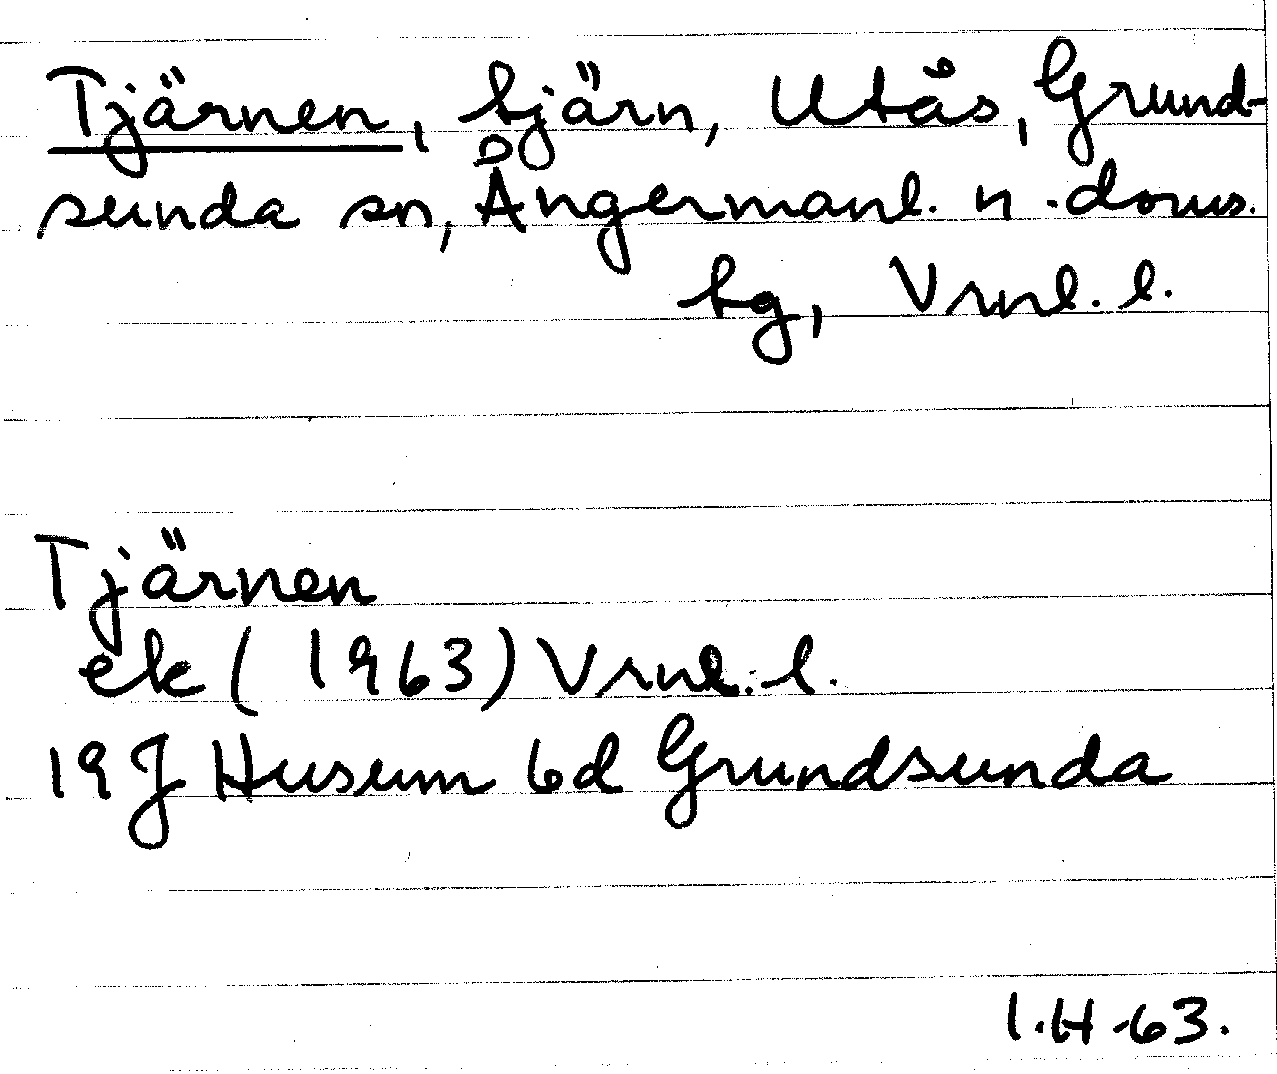 Tjärnen, tjärn, Utås, Grund-
sunda sn, Ångermanl. n. doms.
tg, Vrnl. l.
Tjärnen
ek (1963) Vrnl. l.
19 J Husum 6d Grundsunda
I.H-63.